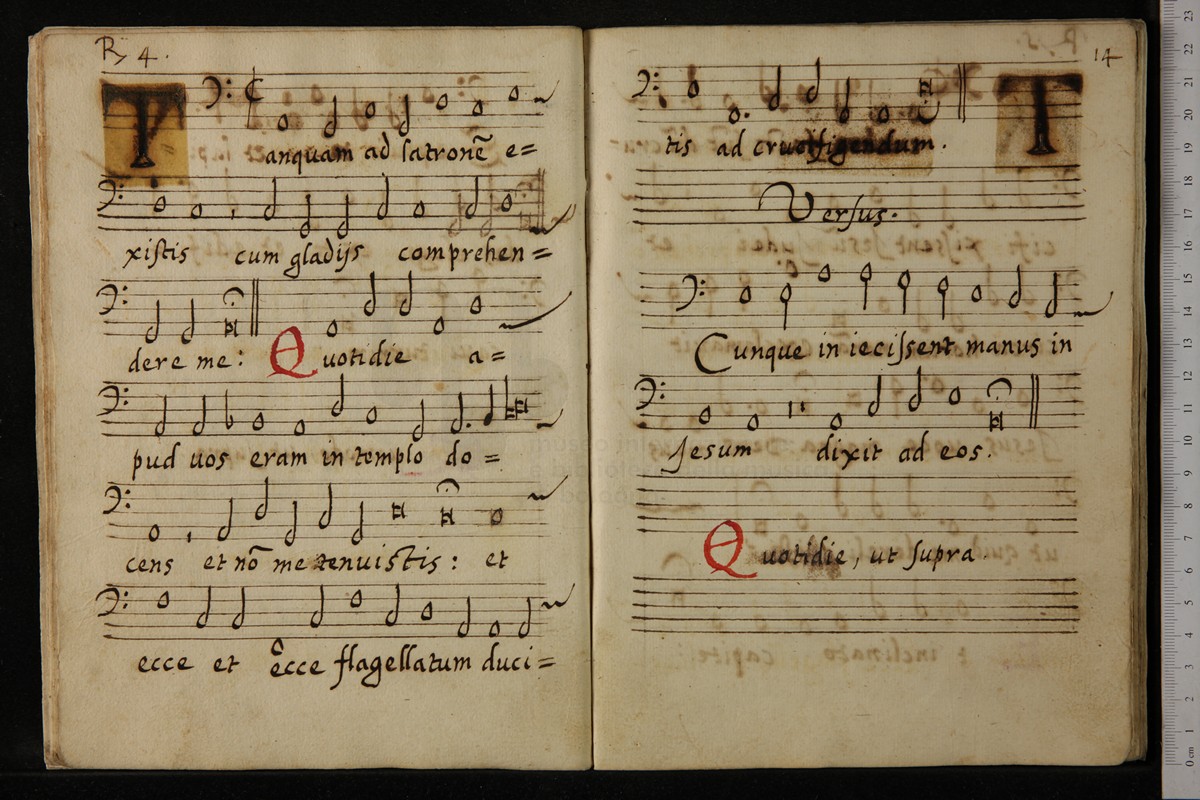 R 4.
Tanquam ad latronē e=
xistis cum gladijs comprehen=
dere me: Quotidie a=
pud uos eram in templo do=
cens et nō me tenuistis: et
ecce et ecce flagellatum duci=
14
tis ad crucifigendum. T
Versus.
Cunque in iecissent manus in
Jesum dixit ad eos.
Quotidie, ut supra
0 cm 1 2 3 4 5 6 7 8 9 10 11 12 13 14 15 16 17 18 19 20 21 22 23